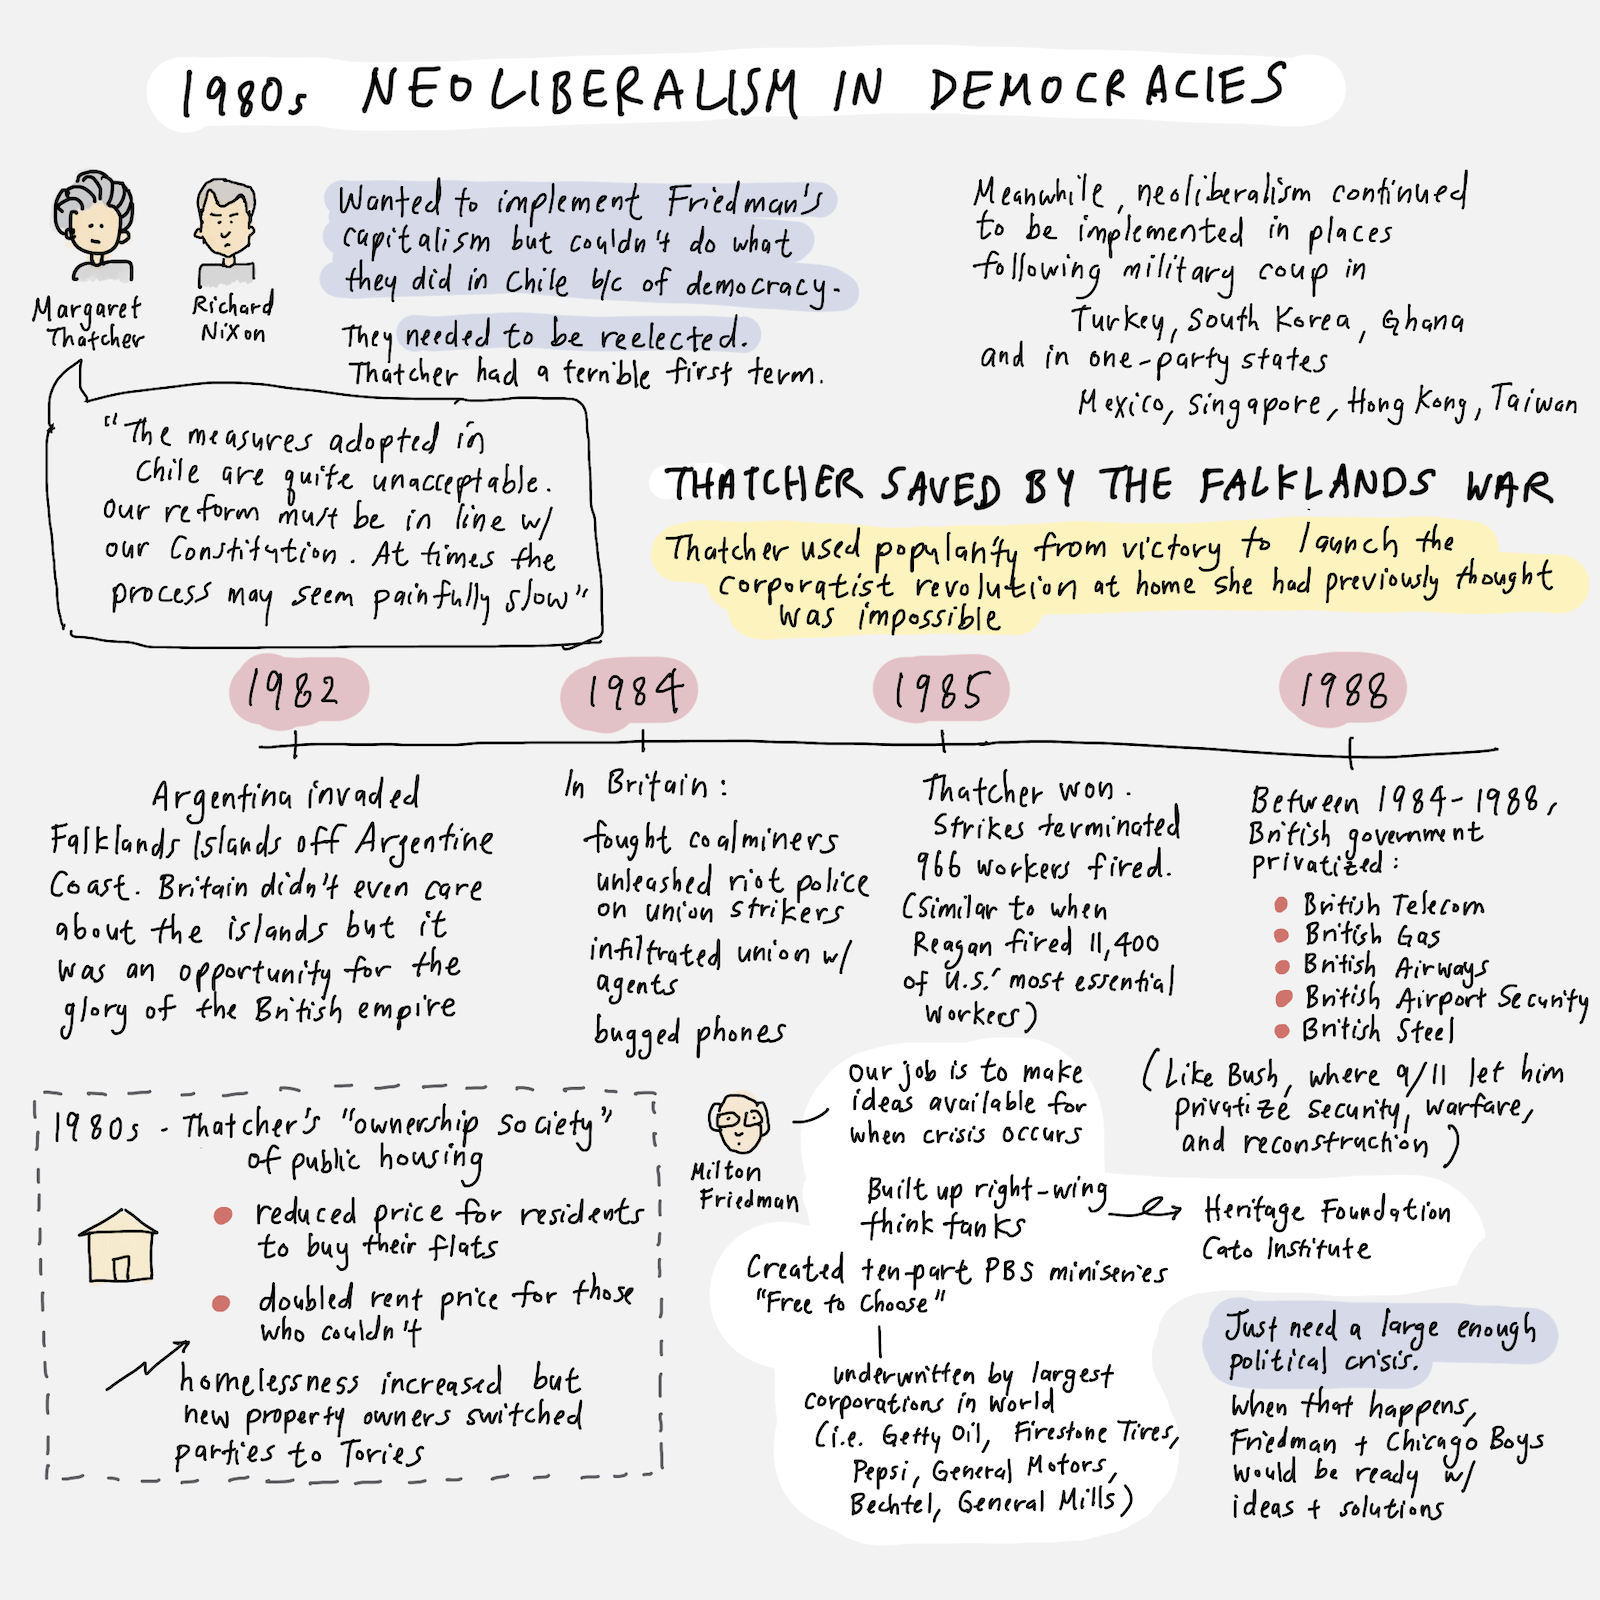 1980s NEOLIBERALISM IN DEMOCRACIES
Margaret
Thatcher
Richard
Nixon
Wanted to implement Friedman's
capitalism but couldn't do what
they did in Chile b/c of democracy.
They needed to be reelected.
Thatcher had a terrible first term.
Meanwhile, neoliberalism continued
to be implemented in places
following military coup in
Turkey, South Korea, Ghana
and in one-party states
Mexico, Singapore, Hong Kong, Taiwan
"The measures adopted in
Chile are quite unacceptable.
Our reform must be in line w/
our Constitution. At times the
process may seem painfully slow"
THATCHER SAVED BY THE FALKLANDS WAR
Thatcher used popularity from victory to launch the
corporatist revolution at home she had previously thought
was impossible
1982
1984
1985
1988
Argentina invaded
Falklands Islands off Argentine
Coast. Britain didn't even care
about the islands but it
was an opportunity for the
glory of the British empire
In Britain:
fought coalminers
unleashed riot police
on union strikers
infiltrated union w/
agents
bugged phones
Thatcher won.
Strikes terminated
966 workers fired.
(Similar to when
Reagan fired 11,400
of U.S.' most essential
workers)
Between 1984-1988,
British government
privatized:
British Telecom
British Gas
British Airways
British Airport Security
British Steel
(Like Bush, where 9/11 let him
privatize security, warfare,
and reconstruction)
1980s - Thatcher's "ownership society"
of public housing
reduced price for residents
to buy their flats
doubled rent price for those
who couldn't
homelessness increased but
new property owners switched
parties to Tories
Milton
Friedman
Our job is to make
ideas available for
when crisis occurs
Built up right-wing
think tanks
Heritage Foundation
Cato Institute
Created ten-part PBS miniseries
"Free to Choose"
underwritten by largest
corporations in world
(i.e. Getty Oil, Firestone Tires,
Pepsi, General Motors,
Bechtel, General Mills)
Just need a large enough
political crisis.
When that happens,
Friedman + Chicago Boys
would be ready w/
ideas + solutions